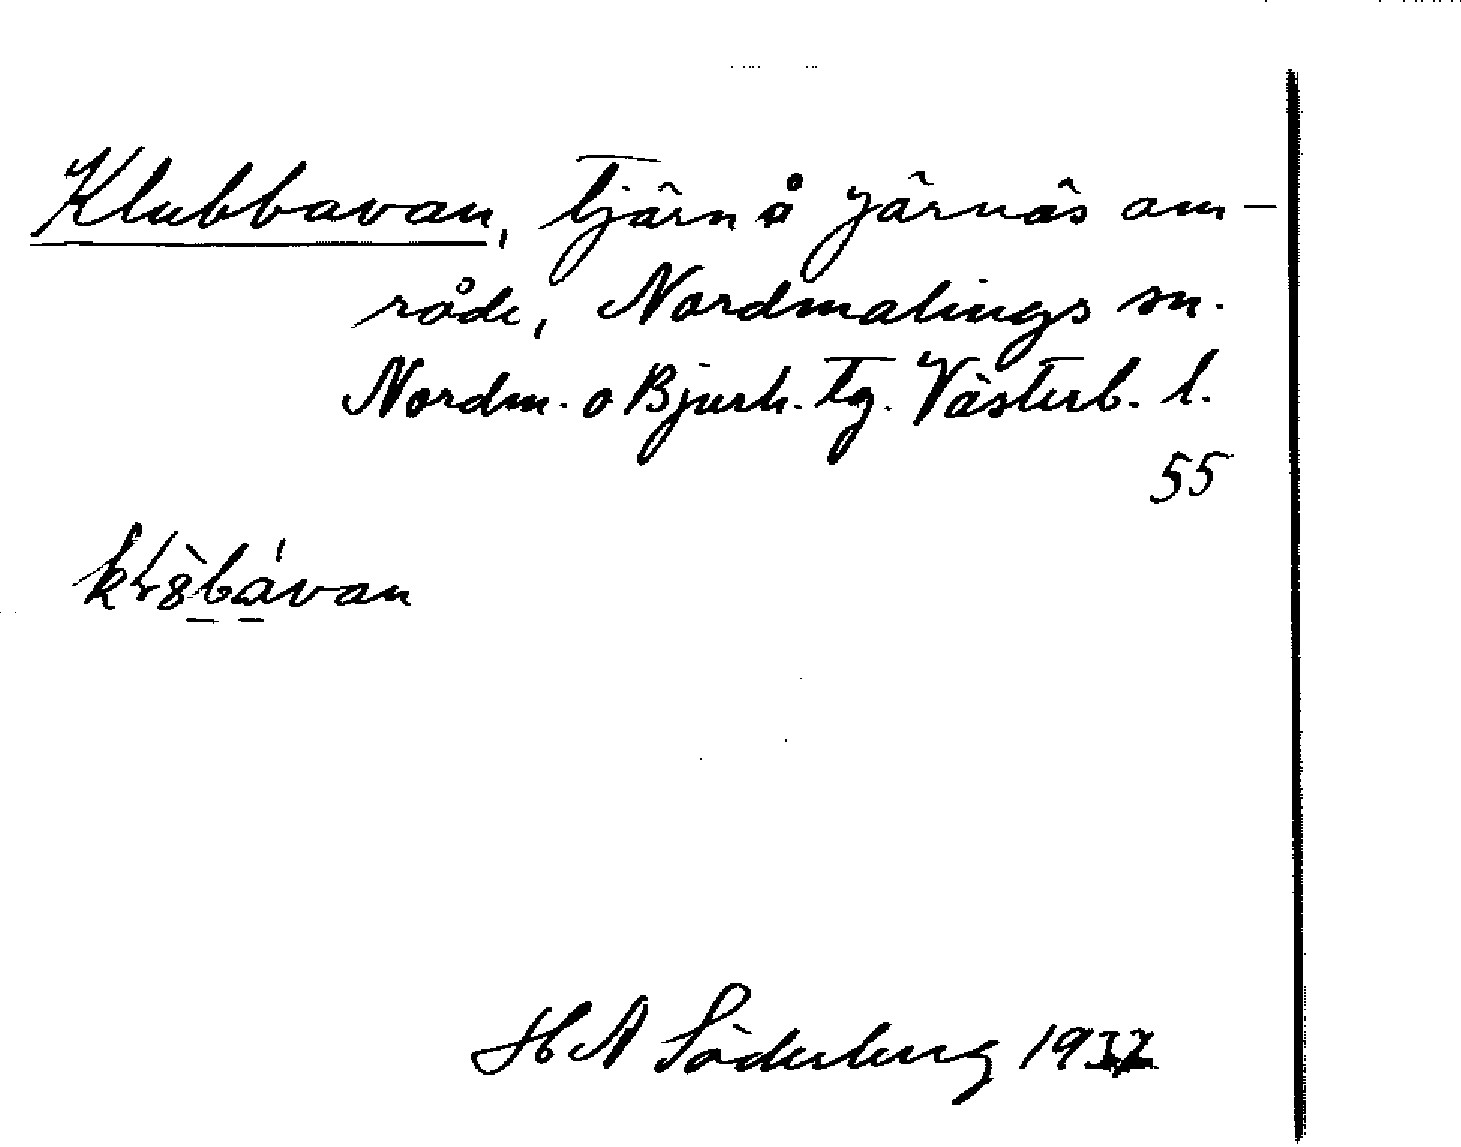 Klubbavan, tjärn å Järnäs om-
råde, Nordmalings sn.
Nordm. o Bjurh. tg. Västerb. l.
55
H A Söderberg 1932